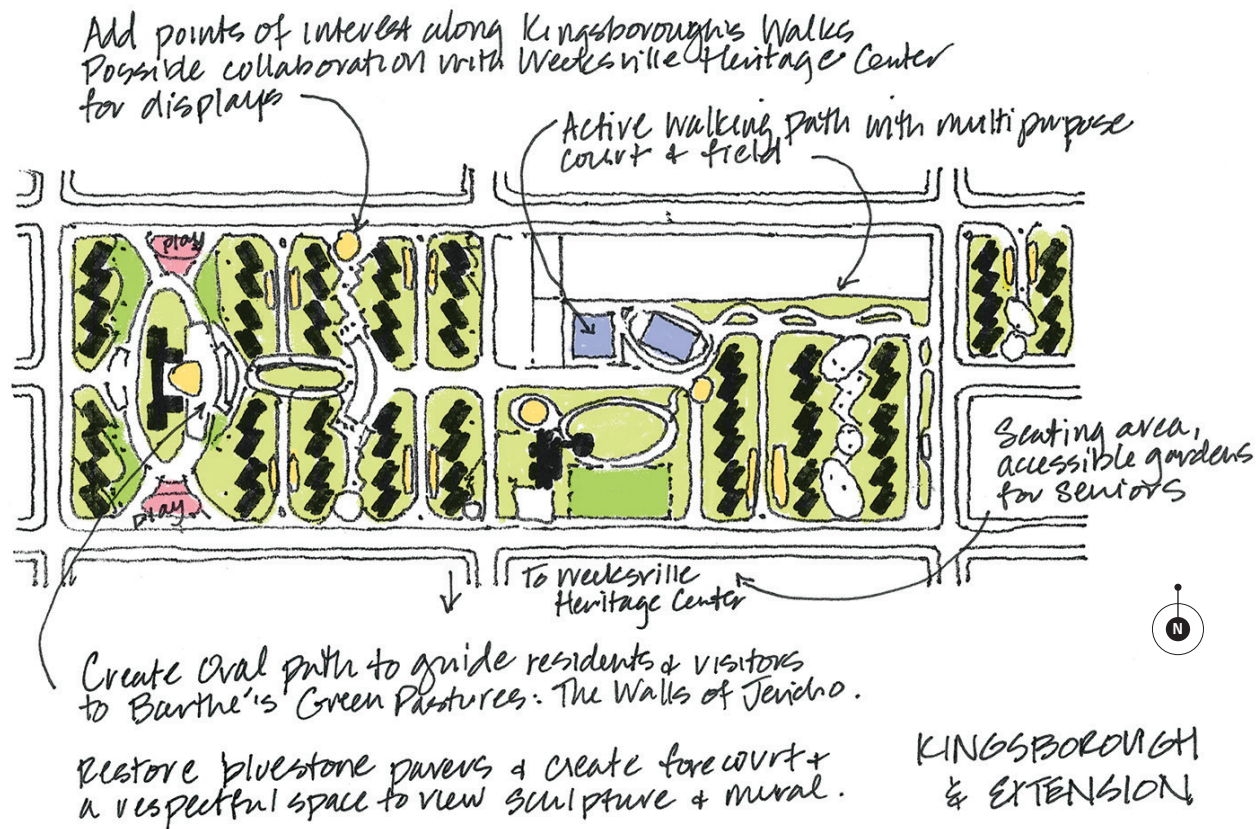 Add points of interest along Kingsborough's Walks
Possible collaboration with Weeksville Heritage Center
for displays
Active walking path with multipurpose
court & field
play
play
Seating area,
accessible gardens
for seniors
To Weeksville
Heritage Center
N
Create oval path to guide residents & visitors
to Barthe's Green Pastures: The Walls of Jericho.
Restore bluestone pavers & create forecourt &
a respectful space to view sculpture & mural.
KINGSBOROUGH
& EXTENSION